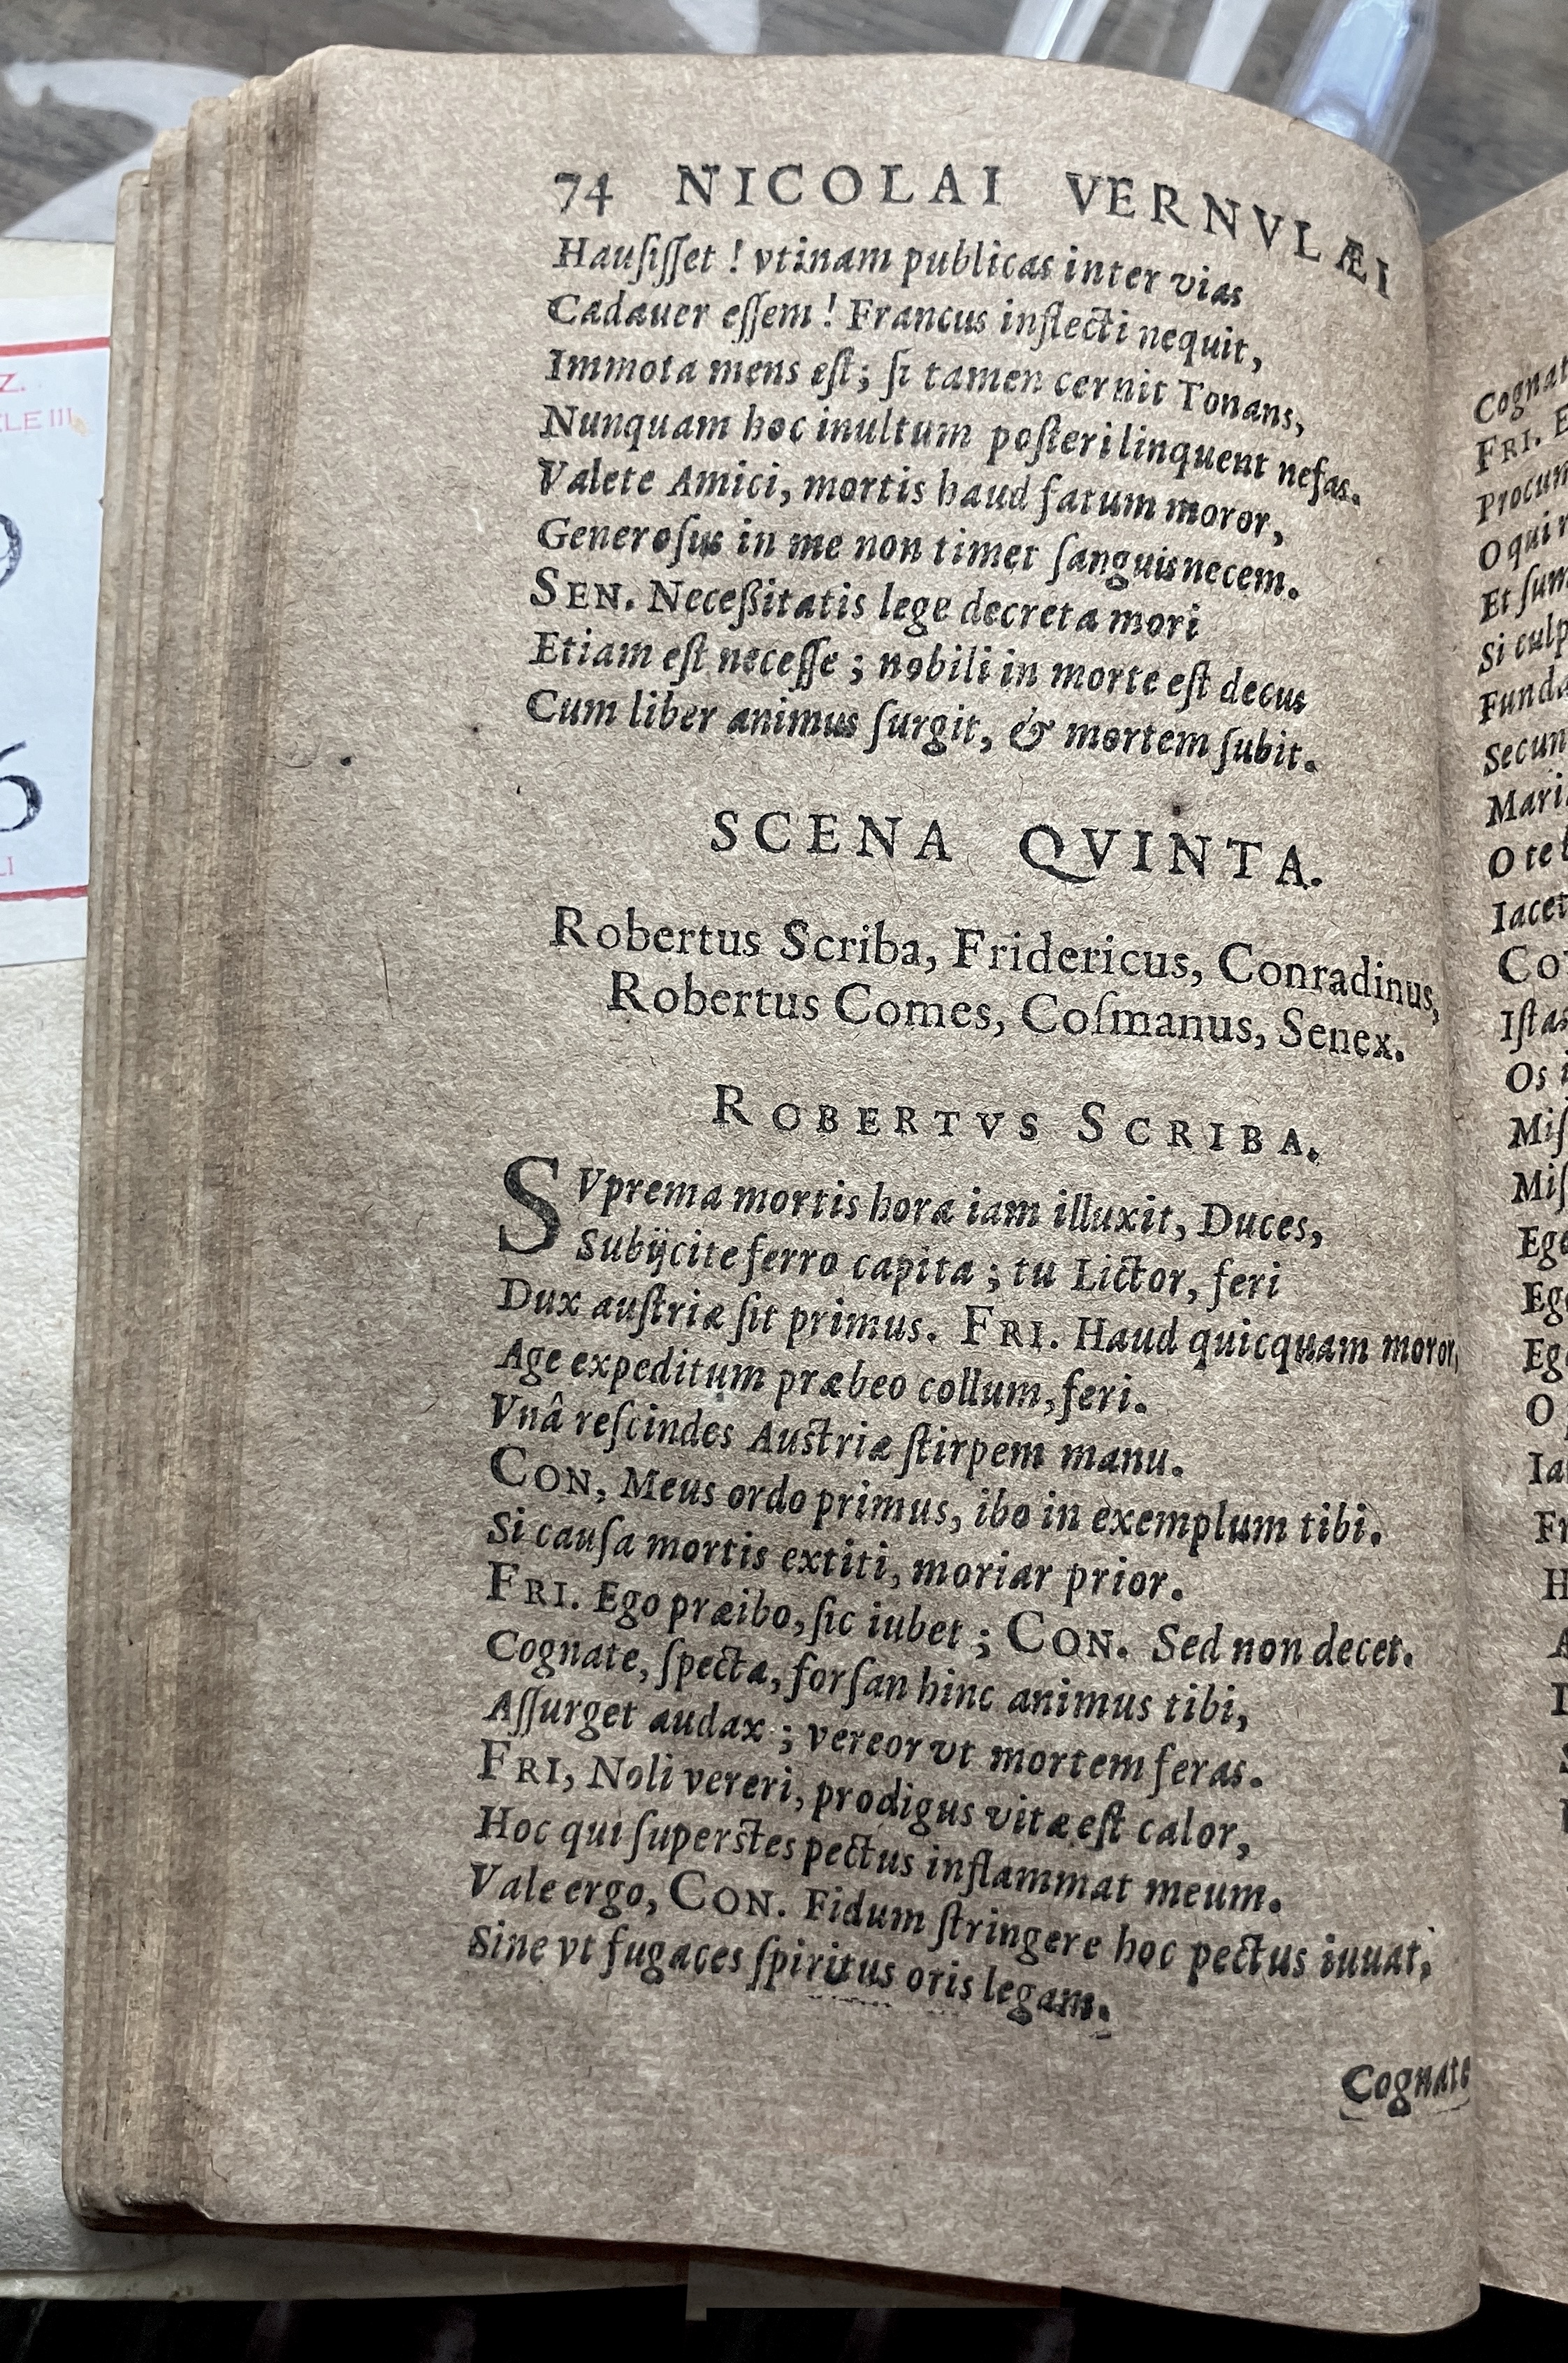 74 NICOLAI VERNVLÆI
Hauſiſſet ! vtinam publicas inter vias
Cadauer eſſem ! Francus inflecti nequit,
Immota mens eſt; ſi tamen cernit Tonans,
Nunquam hoc inultum poſteri linquent nefas.
Valete Amici, mortis haud fatum moror,
Generoſus in me non timet ſanguis necem.
SEN. Neceßitatis lege decreta mori
Etiam eſt neceſſe ; nobili in morte eſt decus
Cum liber animus ſurgit, & mortem ſubit.
SCENA QVINTA.
Robertus Scriba, Fridericus, Conradinus,
Robertus Comes, Coſmanus, Senex.
ROBERTVS SCRIBA.
SVprema mortis hora iam illuxit, Duces,
Subijcite ferro capita ; tu Lictor, feri
Dux auſtriæ ſit primus. FRI. Haud quicquam moror,
Age expeditum præbeo collum, feri.
Vnâ reſcindes Auſtriæ ſtirpem manu.
CON, Meus ordo primus, ibo in exemplum tibi.
Si cauſa mortis extiti, moriar prior.
FRI. Ego præibo, ſic iubet ; CON. Sed non decet.
Cognate, ſpecta, forſan hinc animus tibi,
Aſſurget audax ; vereor vt mortem feras.
FRI, Noli vereri, prodigus vitæ eſt calor,
Hoc qui ſuperſtes pectus inflammat meum.
Vale ergo, CON. Fidum ſtringere hoc pectus iuuat,
Sine vt fugaces ſpiritus oris legam.
Cognate
Z.
CLE III
9
6
LI
Cognat
FRI. E
Procum
O qui
Et ſum
Si culp
Funda
Secun
Mari
O te
Iacet
Iſtas
Os
Miſ
Miſ
Ege
Ego
Eg
O
Ia
Fr
H